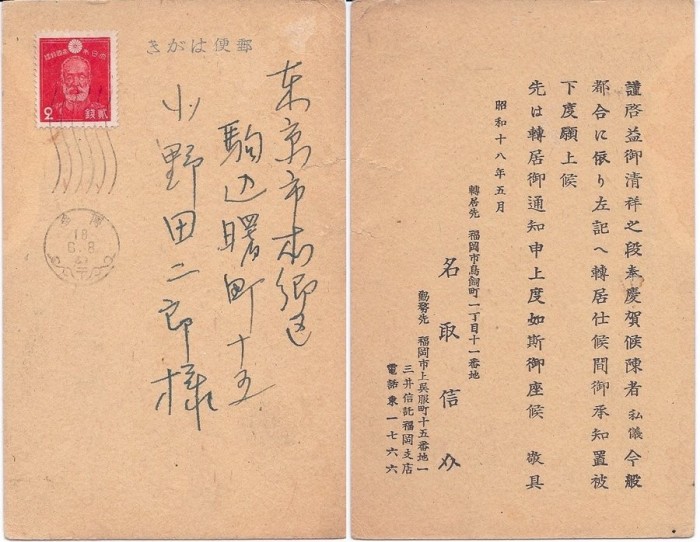 郵便はがき
大日本帝國郵便
2
貳錢
福岡
18
6.8
東京市本郷区
駒込曙町十五
小野田二郎様
謹啓益御清祥之段奉慶賀候陳者私儀今般
都合に依り左記へ轉居仕候間御承知置被
下度願上候
先は轉居御通知申上度如斯御座候 敬具
昭和十八年五月
轉居先 福岡市鳥飼町一丁目十一番地
名取信介
勤務先 福岡市上呉服町十五番地一
三井信託福岡支店
電話東一七六六